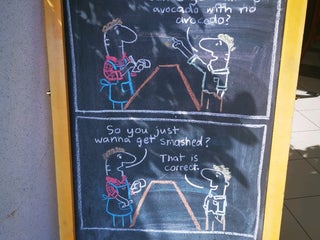 avocado with no
avocado?
So you just
wanna get smashed?
That is
correct.